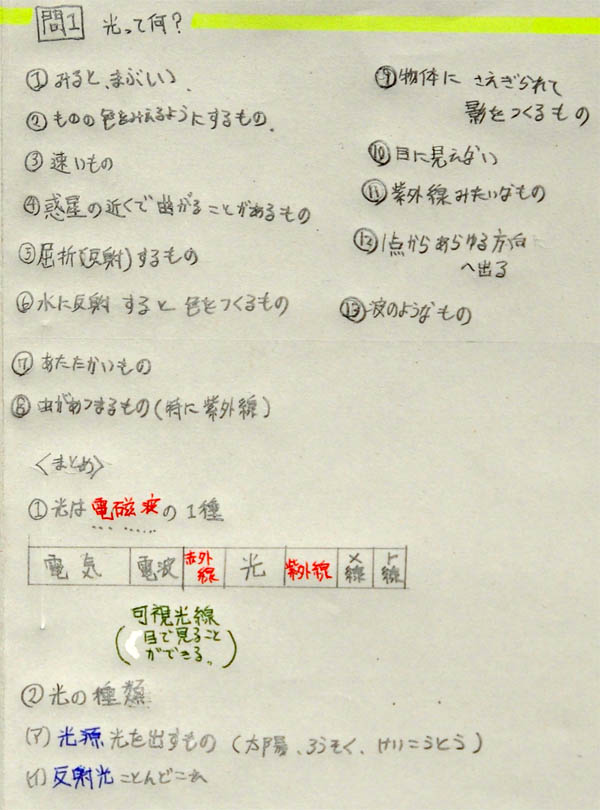 問1 光って何?
①みると、まぶしい
②ものの色をみえるようにするもの
③速いもの
④惑星の近くで曲がることがあるもの
⑤屈折(反射)するもの
⑥水に反射すると色をつくるもの
⑦あたたかいもの
⑧虫があつまるもの(特に紫外線)
⑨物体にさえぎられて
影をつくるもの
⑩目に見えない
⑪紫外線みたいなもの
⑫1点からあらゆる方向
へ出る
⑬波のようなもの
〈まとめ〉
①光は電磁波の1種
電気 電波 赤外線 光 紫外線 X線 γ線
可視光線
(目で見ること
ができる。)
②光の種類
(ア)光源 光を出すもの(太陽、ろうそく、けいこうとう)
(イ)反射光